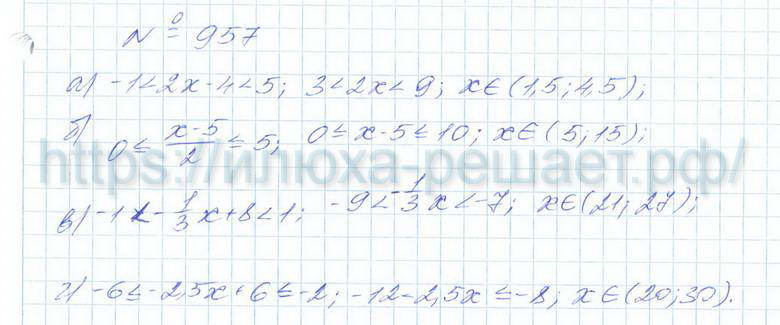 № 957
а) -1<2x-4<5; 3<2x<9; x∈(1,5; 4,5);
б) 0≤(x-5)/2≤5; 0≤x-5≤10; x∈(5; 15);
https://илюха-решает.рф/
в) -1<-1/3x+8<1; -9<-1/3x<-7; x∈(21; 27);
г) -6≤-2,5x+6≤-2; -12-2,5x≤-8; x∈(20; 30).